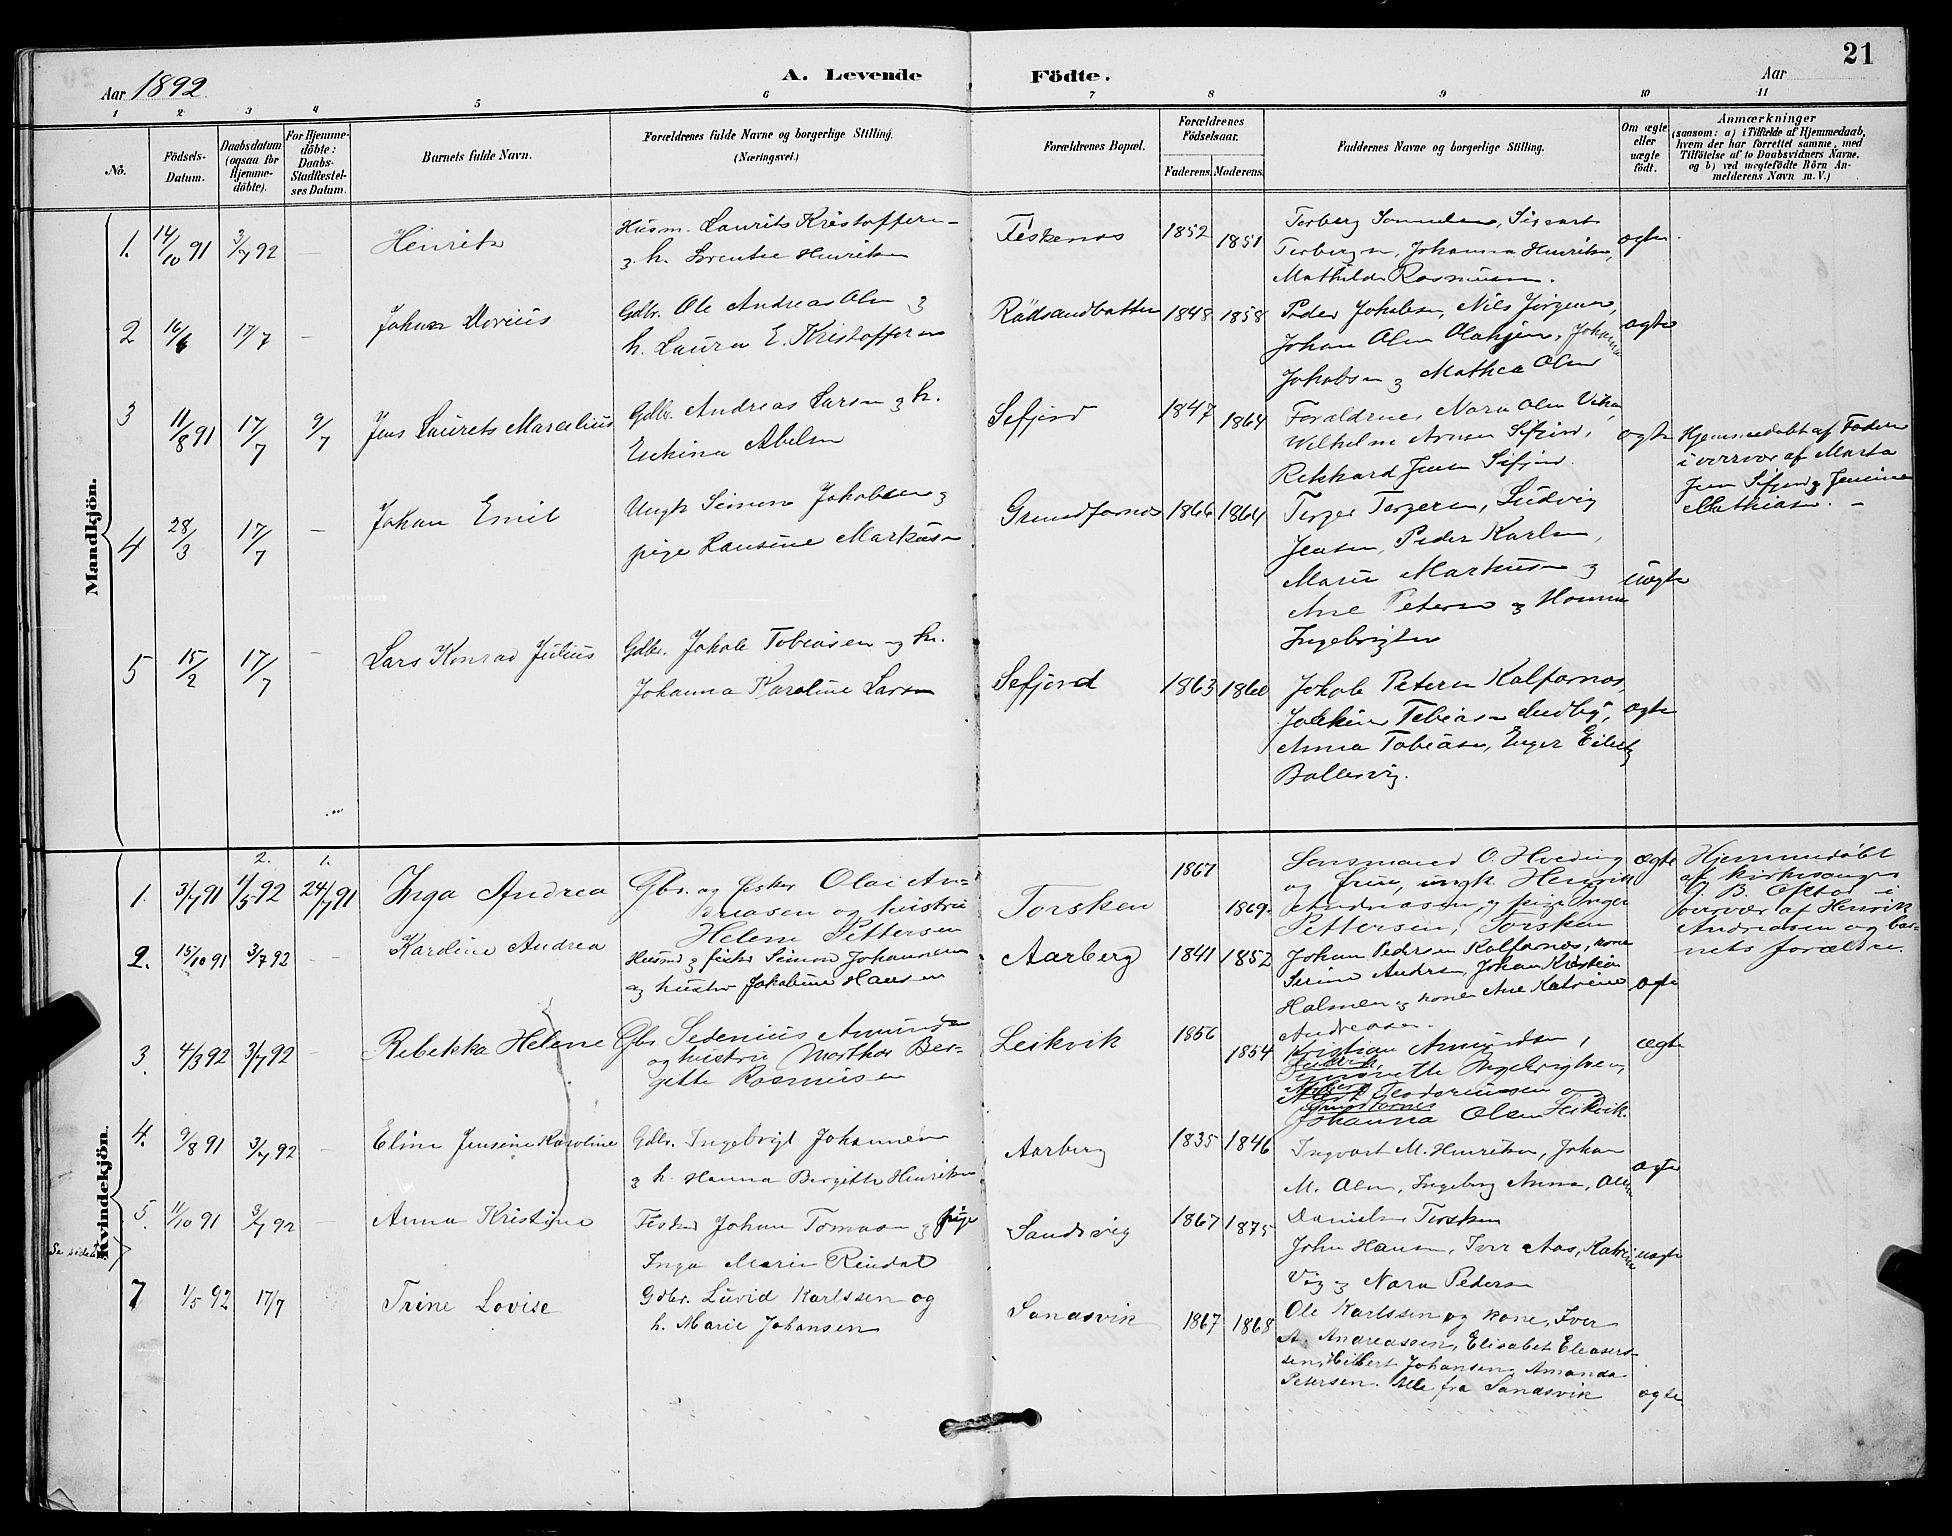 21
Aar 1892.
A. Levende Fødte.
Aar
1 2 3 4 5 6 7 8 9 10 11
No.
Födsels-Datum.
Daabsdatum (ogsaa for Hjemme-döbte).
For Hjemme-döbte: Daabs-Stadfæstel-ses Datum.
Barnets fulde Navn.
Forældrenes fulde Navne og borgerlige Stilling. (Næringsvei.)
Forældrenes Bopæl.
Forældrenes Födselsaar.
Faderens. Moderens.
Faddernes Navne og borgerlige Stilling.
Om ægte eller uægte födt.
Anmærkninger
(saasom: a) i Tilfælde af Hjemmedaab, hvem der har forrettet samme, med Tilföielse af to Daabsvidners Navne, og b) ved uægtefödte Börn An-melderens Navn m. V.)
Mandkjön.
1. 14/10 91 3/7 92 — Henrik
Husm. Laurits Kristoffersen
og h. Henriksen
Fiskenes 1852 1851
Torberg Samuelsen, Sigvart
Johanna Henriksen,
Mathilde Rasmussen.
ægte
2 16/6 17/7 — Johan Dorius
Gdbr. Ole Andreas Olsen og
h. Laura E. Kristoffersen
Rödsandbotten 1848 1858
Peder Jakobsen, Nils Jörgensen,
Johan Olsen Johanna
Jakobsen og Mathea Olsen
ægte
3 11/8 91 17/7 9/7 Jens Laurets Marcelius
Gdbr. Andreas Larsen og h.
Eschina Abelsen
Sefjord 1847 1864
Forældrene, Nora Olsen
Wilhelm Arnesen Sifjord,
Rikhard Jensen Sifjord.
ægte
Hjemmedøbt af Faderen
i overvær af Marta
Jensen Sifjord og
Mathiasen. —
4 28/3 17/7 — Johan Emil
Ungk Simon Jakobsen og
pige Hansine Markusen
Grundfarnes 1866 1864
Torger Torgersen, Ludvig
Jensen, Peder Karlsen,
Marie Markusen og
Ane Petersen og Hanna
Ingebrigtsen
uægte
5 15/2 17/7 — Lars Konrad Julius
Gdbr. Jakob Tobiasen og h.
Johanna Karoline Larsen
Sefjord 1863 1860
Jakob Petersen Kalfarnes,
Tobiasen Medby,
Anna Tobiasen, Inger
Ballesvig.
ægte
Kvindekjön.
2. 1.
1. 3/7 91 1/5 92 24/7 91 Inga Andrea
Gbr. og fisker Olai An-
dreasen og hustru
Helene Pettersen
Torsken 1867 1869.
Lensmand O. Hveding
og frue, ungk. Henrik
Andreasen, og pige Inger
Pettersen, Torsken
ægte
Hjemmedøbt
af kirkesanger
J. B. i
overvær af Henrik
Andreasen og bar-
nets forældre.
2. 15/10 91 3/7 92 — Karoline Andrea
Husmd og fisker Simon Johannesen
og hustru Jakobine Hansen
Aarberg 1841 1852
Johan Pedersen Kalfarnes, kone
Serine Andersen, Johan Kristian
og kone Ane Katrine
Andreasen.
ægte
3. 4/3 92 3/7 92 — Rebekka Helene
Gbr Sedenius Amundsen
og hustru Marthe Ber-
gitte Rasmussen
Leikvik 1856 1854
Kristian Amundsen,
Ingebrigtsen,
Teodoriussen og
Johanna Olsen Leikvik.
ægte
4. 9/8 91 3/7 92 — Eline Jensine Karoline
Gdbr. Ingebrigt Johannesen
og h. Hanna Bergitte Henriksen
Aarberg 1835 1846
Ingvart M. Henriksen, Johan
M. Olsen, Ingeborg Anna, Oline
Danielsen Torsken
ægte
5. 11/10 91 3/7 92 — Anna Kristine
Fisker Johan Tomasen og pige
Inga Marie Rindal
Sandsvig 1867 1875
John Hansen, Iver Aas, Katrine
Vig og Nora Pedersen
uægte
Se side
7 1/5 92 17/7 Trine Lovise
Gdbr. Luvid Karlssen og
h. Marie Johansen
Sandsvik 1867 1868
Ole Karlssen og kone, Iver
A. Andreassen, Elisabet Eleasers-
sen, Hilbert Johansen, Amanda
Petersen. Alle fra Sandsvik
ægte